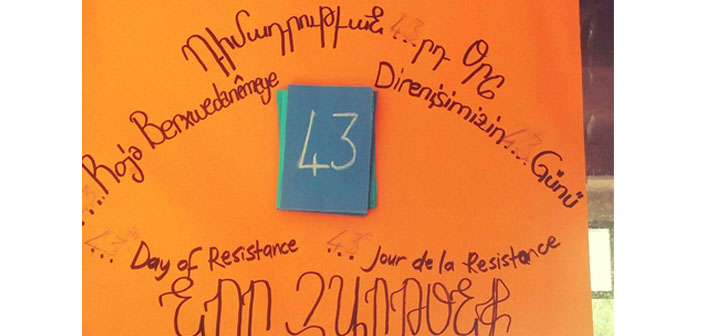 Դիմադրութեան 43...րդ Օրը
43... Roja Berxwedanêmeye
Direnişimizin 43... Günü
43
43th Day of Resistance
43e Jour de la Resistance